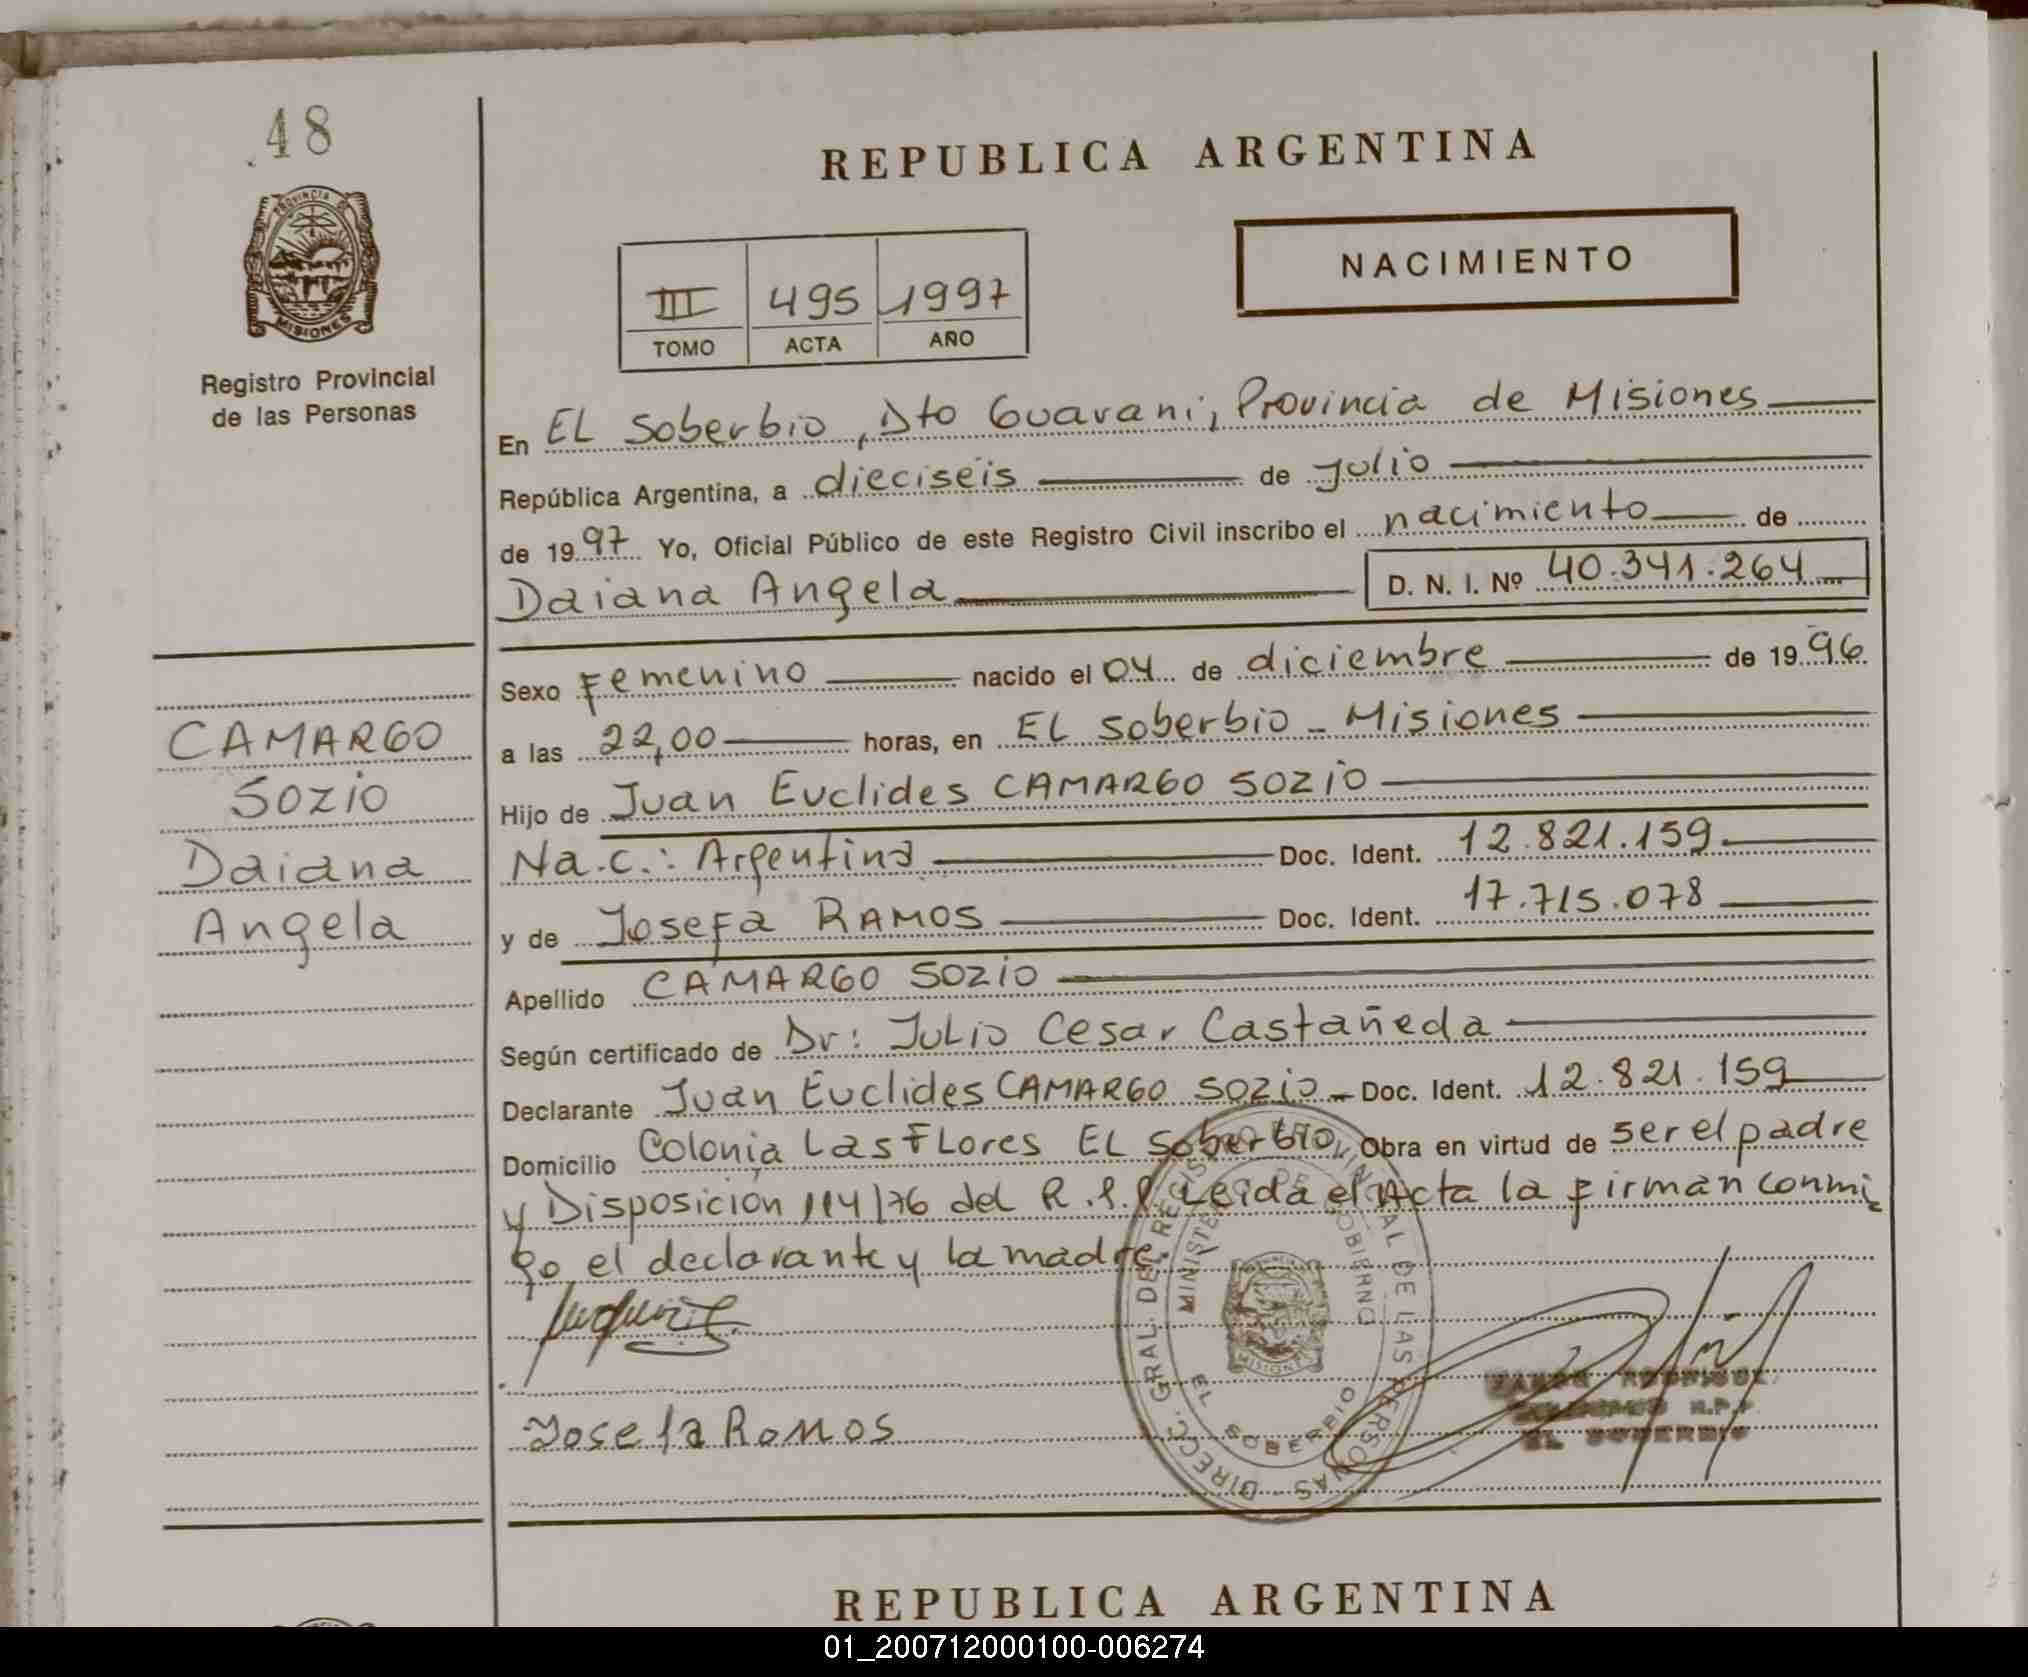 48
PROVINCIA DE
MISIONES
Registro Provincial
de las Personas
CAMARGO
SOZIO
Daiana
Angela
REPUBLICA ARGENTINA
NACIMIENTO
III 495 1997
TOMO ACTA AÑO
En EL Soberbio, Dto Guarani, Provincia de Misiones
República Argentina, a dieciseis de Julio
de 1997 Yo, Oficial Público de este Registro Civil inscribo el nacimiento de
Daiana Angela D. N. I. Nº 40.341.264
Sexo Femenino nacido el 04 de diciembre de 1996
a las 22,00 horas, en EL Soberbio - Misiones
Hijo de Juan Euclides CAMARGO SOZIO
Na.c.: Argentina Doc. Ident. 12.821.159
y de Josefa RAMOS Doc. Ident. 17.715.078
Apellido CAMARGO SOZIO
Según certificado de Dr: Julio Cesar Castañeda
Declarante Juan Euclides CAMARGO SOZIO - Doc. Ident. 12.821.159
Domicilio Colonia Las Flores EL Soberbio Obra en virtud de ser el padre
y Disposición 114/76 del R.P.P. Leida el Acta la firman conmi
go el declarante y la madre.
Josefa Ramos
DIRECC. GRAL. DEL REGISTRO PROVINCIAL DE LAS PERSONAS
MINISTERIO DE GOBIERNO
MISIONES
EL SOBERBIO
EL SOBERBIO
REPUBLICA ARGENTINA
01_200712000100-006274